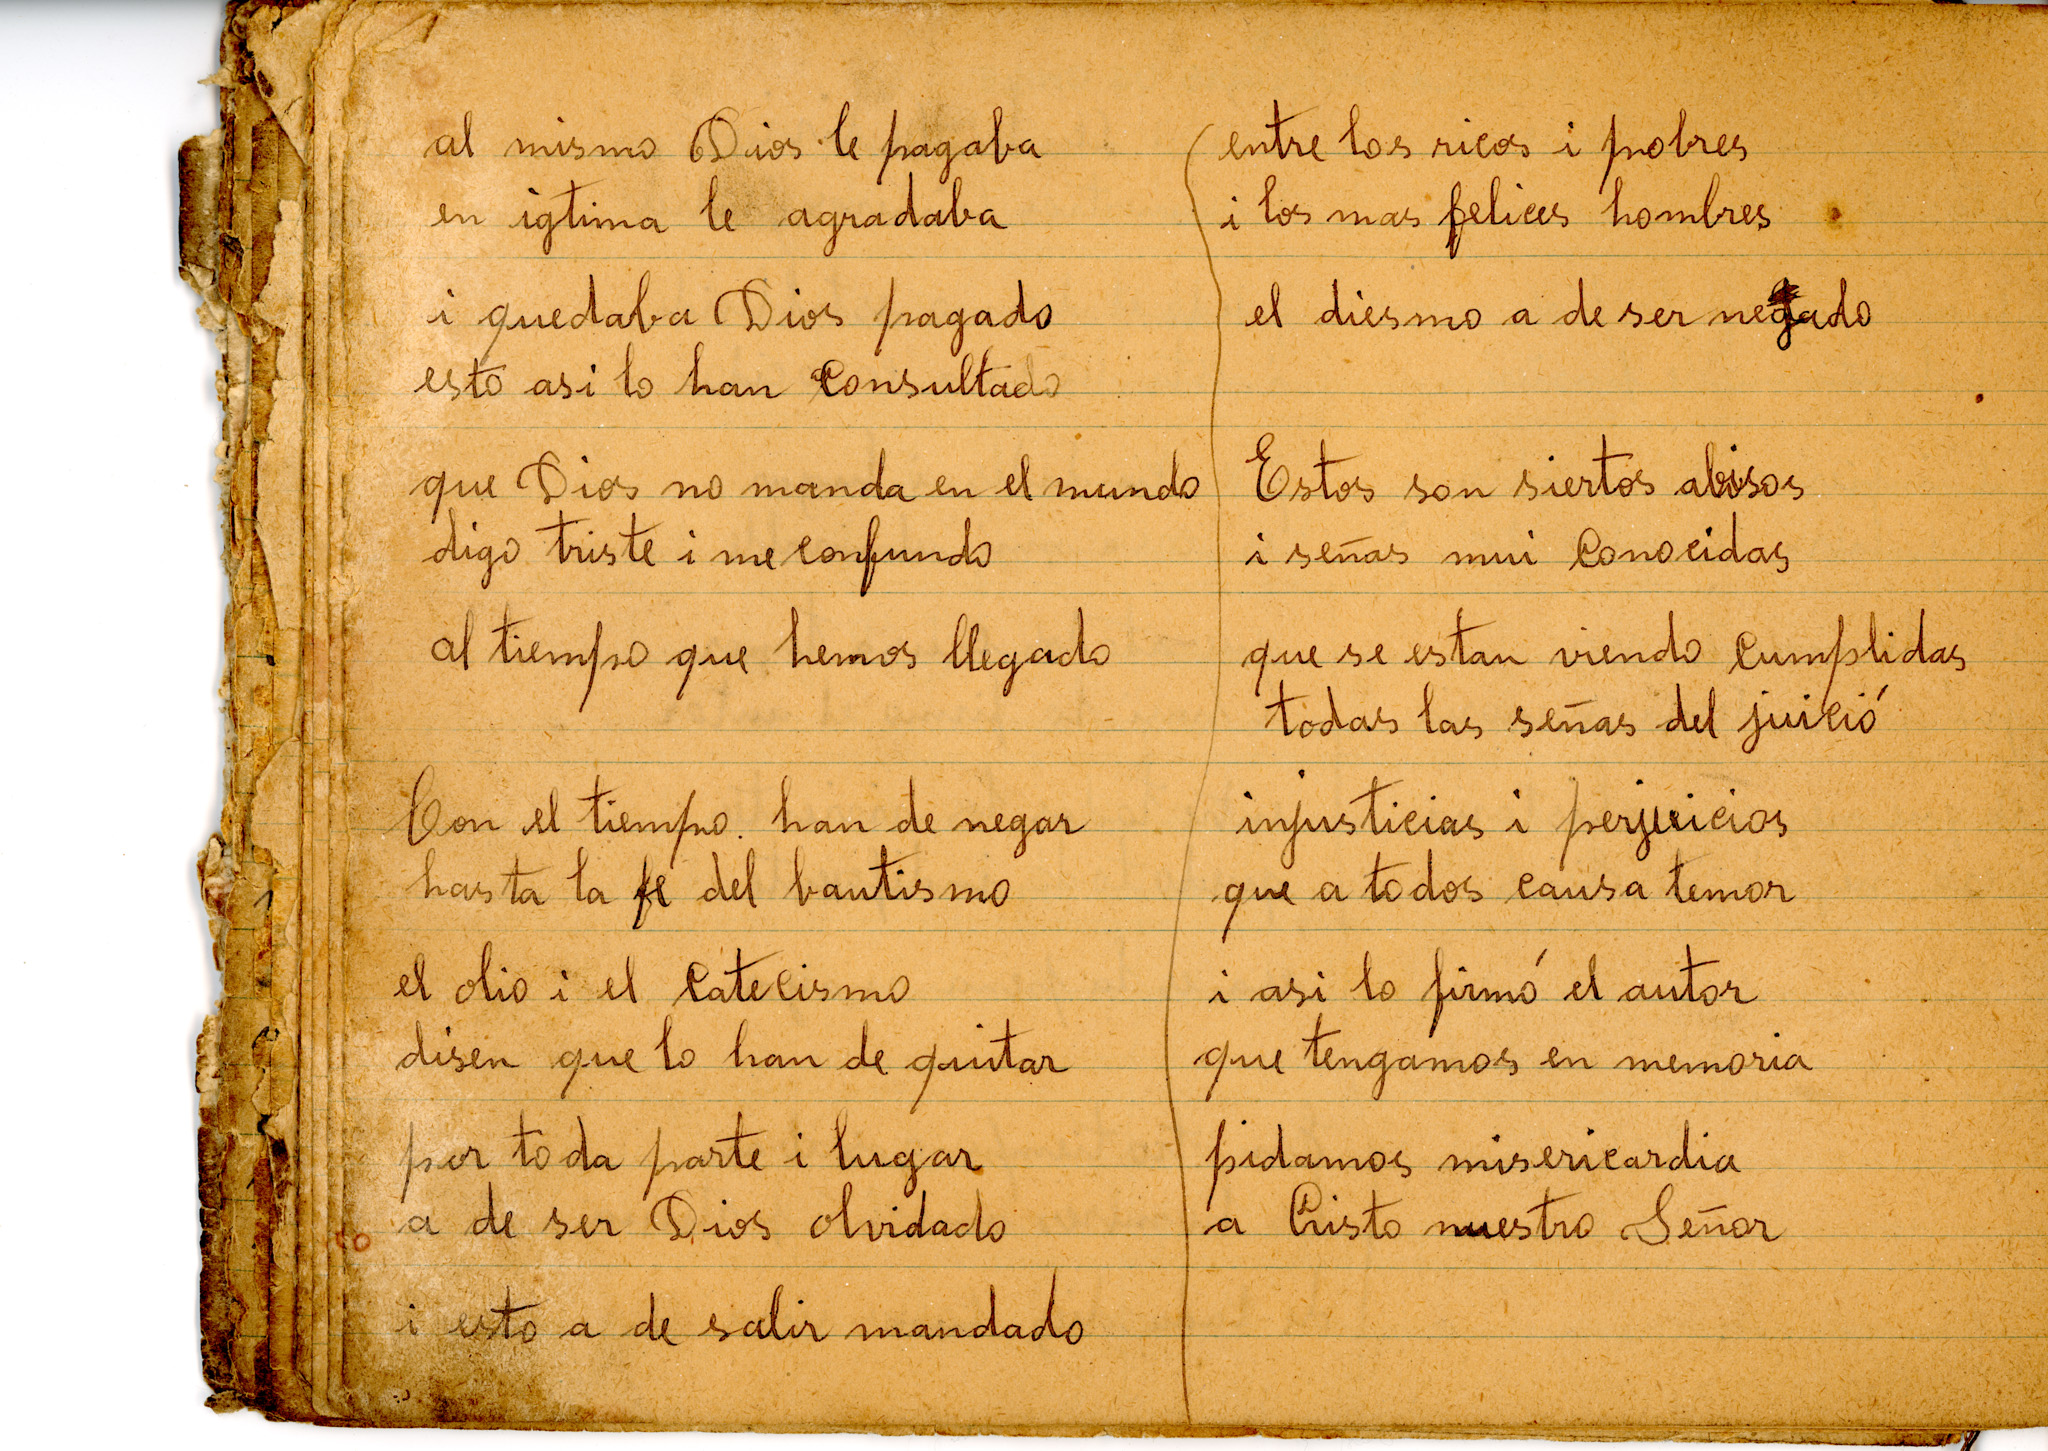 al mismo Dios le pagaba
en igtima le agradaba
i quedaba Dios pagado
esto asi lo han consultado
que Dios no manda en el mundo
digo triste i me confundo
al tiempo que hemos llegado
Con el tiempo. han de negar
hasta la fe del bautismo
el olio i el catecismo
disen que lo han de quitar
por toda parte i lugar
a de ser Dios olvidado
i esto a de salir mandado
entre los ricos i pobres
i los mas felices hombres
el diesmo a de ser negado
Estos son siertos abisos
i señas mui conocidas
que se estan viendo cumplidas
todas las señas del juició
injusticias i perjuicios
que a todos causa temor
i asi lo firmó el autor
que tengamos en memoria
pidamos misericardia
a Cristo nuestro Señor